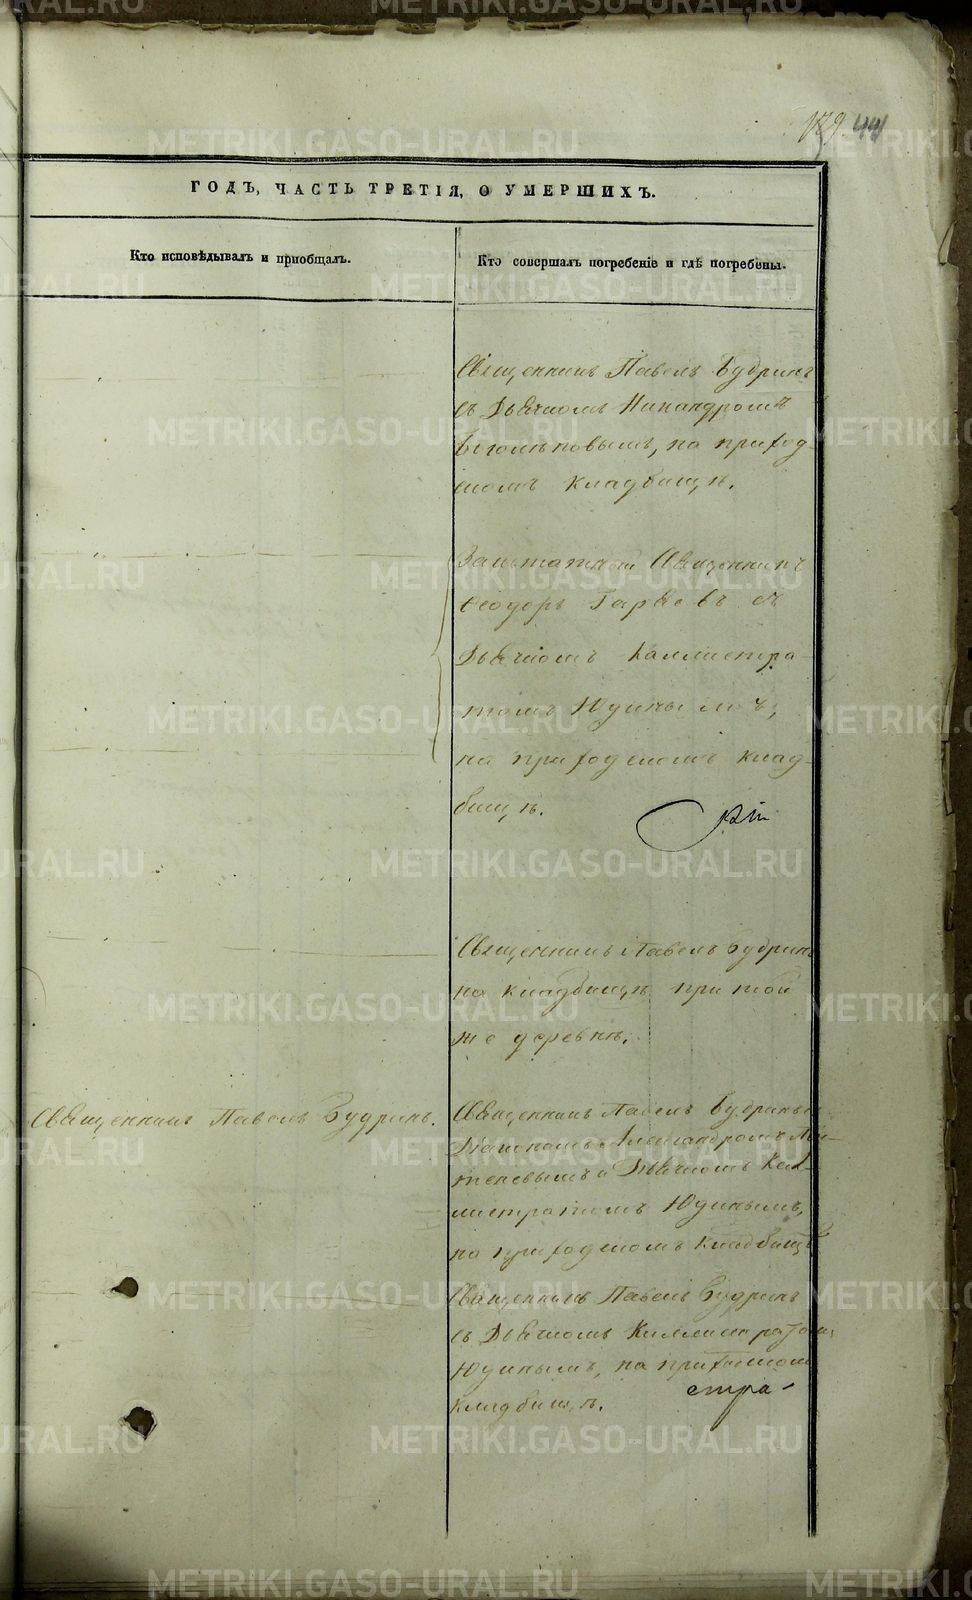 189 44
ГОДЪ, ЧАСТЬ ТРЕТІЯ, О УМЕРШИХЪ.
Кто исповѣдывалъ и пріобщалъ.
Кто совершалъ погребеніе и гдѣ погребены.
Священникъ Павелъ Будринъ
съ Дьячкомъ Никандромъ
Боголѣповымъ, на приход-
скомъ кладбищѣ.
Заштатный Священникъ
Ѳеодоръ съ
Дьячкомъ Каллистра-
томъ Юдинымъ,
на приходскомъ клад-
бищѣ.
Священникъ Павелъ Будринъ
на кладбищѣ при той
же деревнѣ.
Священникъ Павелъ Будринъ.
Священникъ Павелъ Будринъ съ
Діакономъ Александромъ
и Дьячкомъ Кал-
листратомъ Юдинымъ,
на приходскомъ кладбищѣ
Священникъ Павелъ Будринъ
съ Дьячкомъ Каллистратомъ
Юдинымъ, на приходскомъ
кладбищѣ.
стра-
METRIKI.GASO-URAL.RU